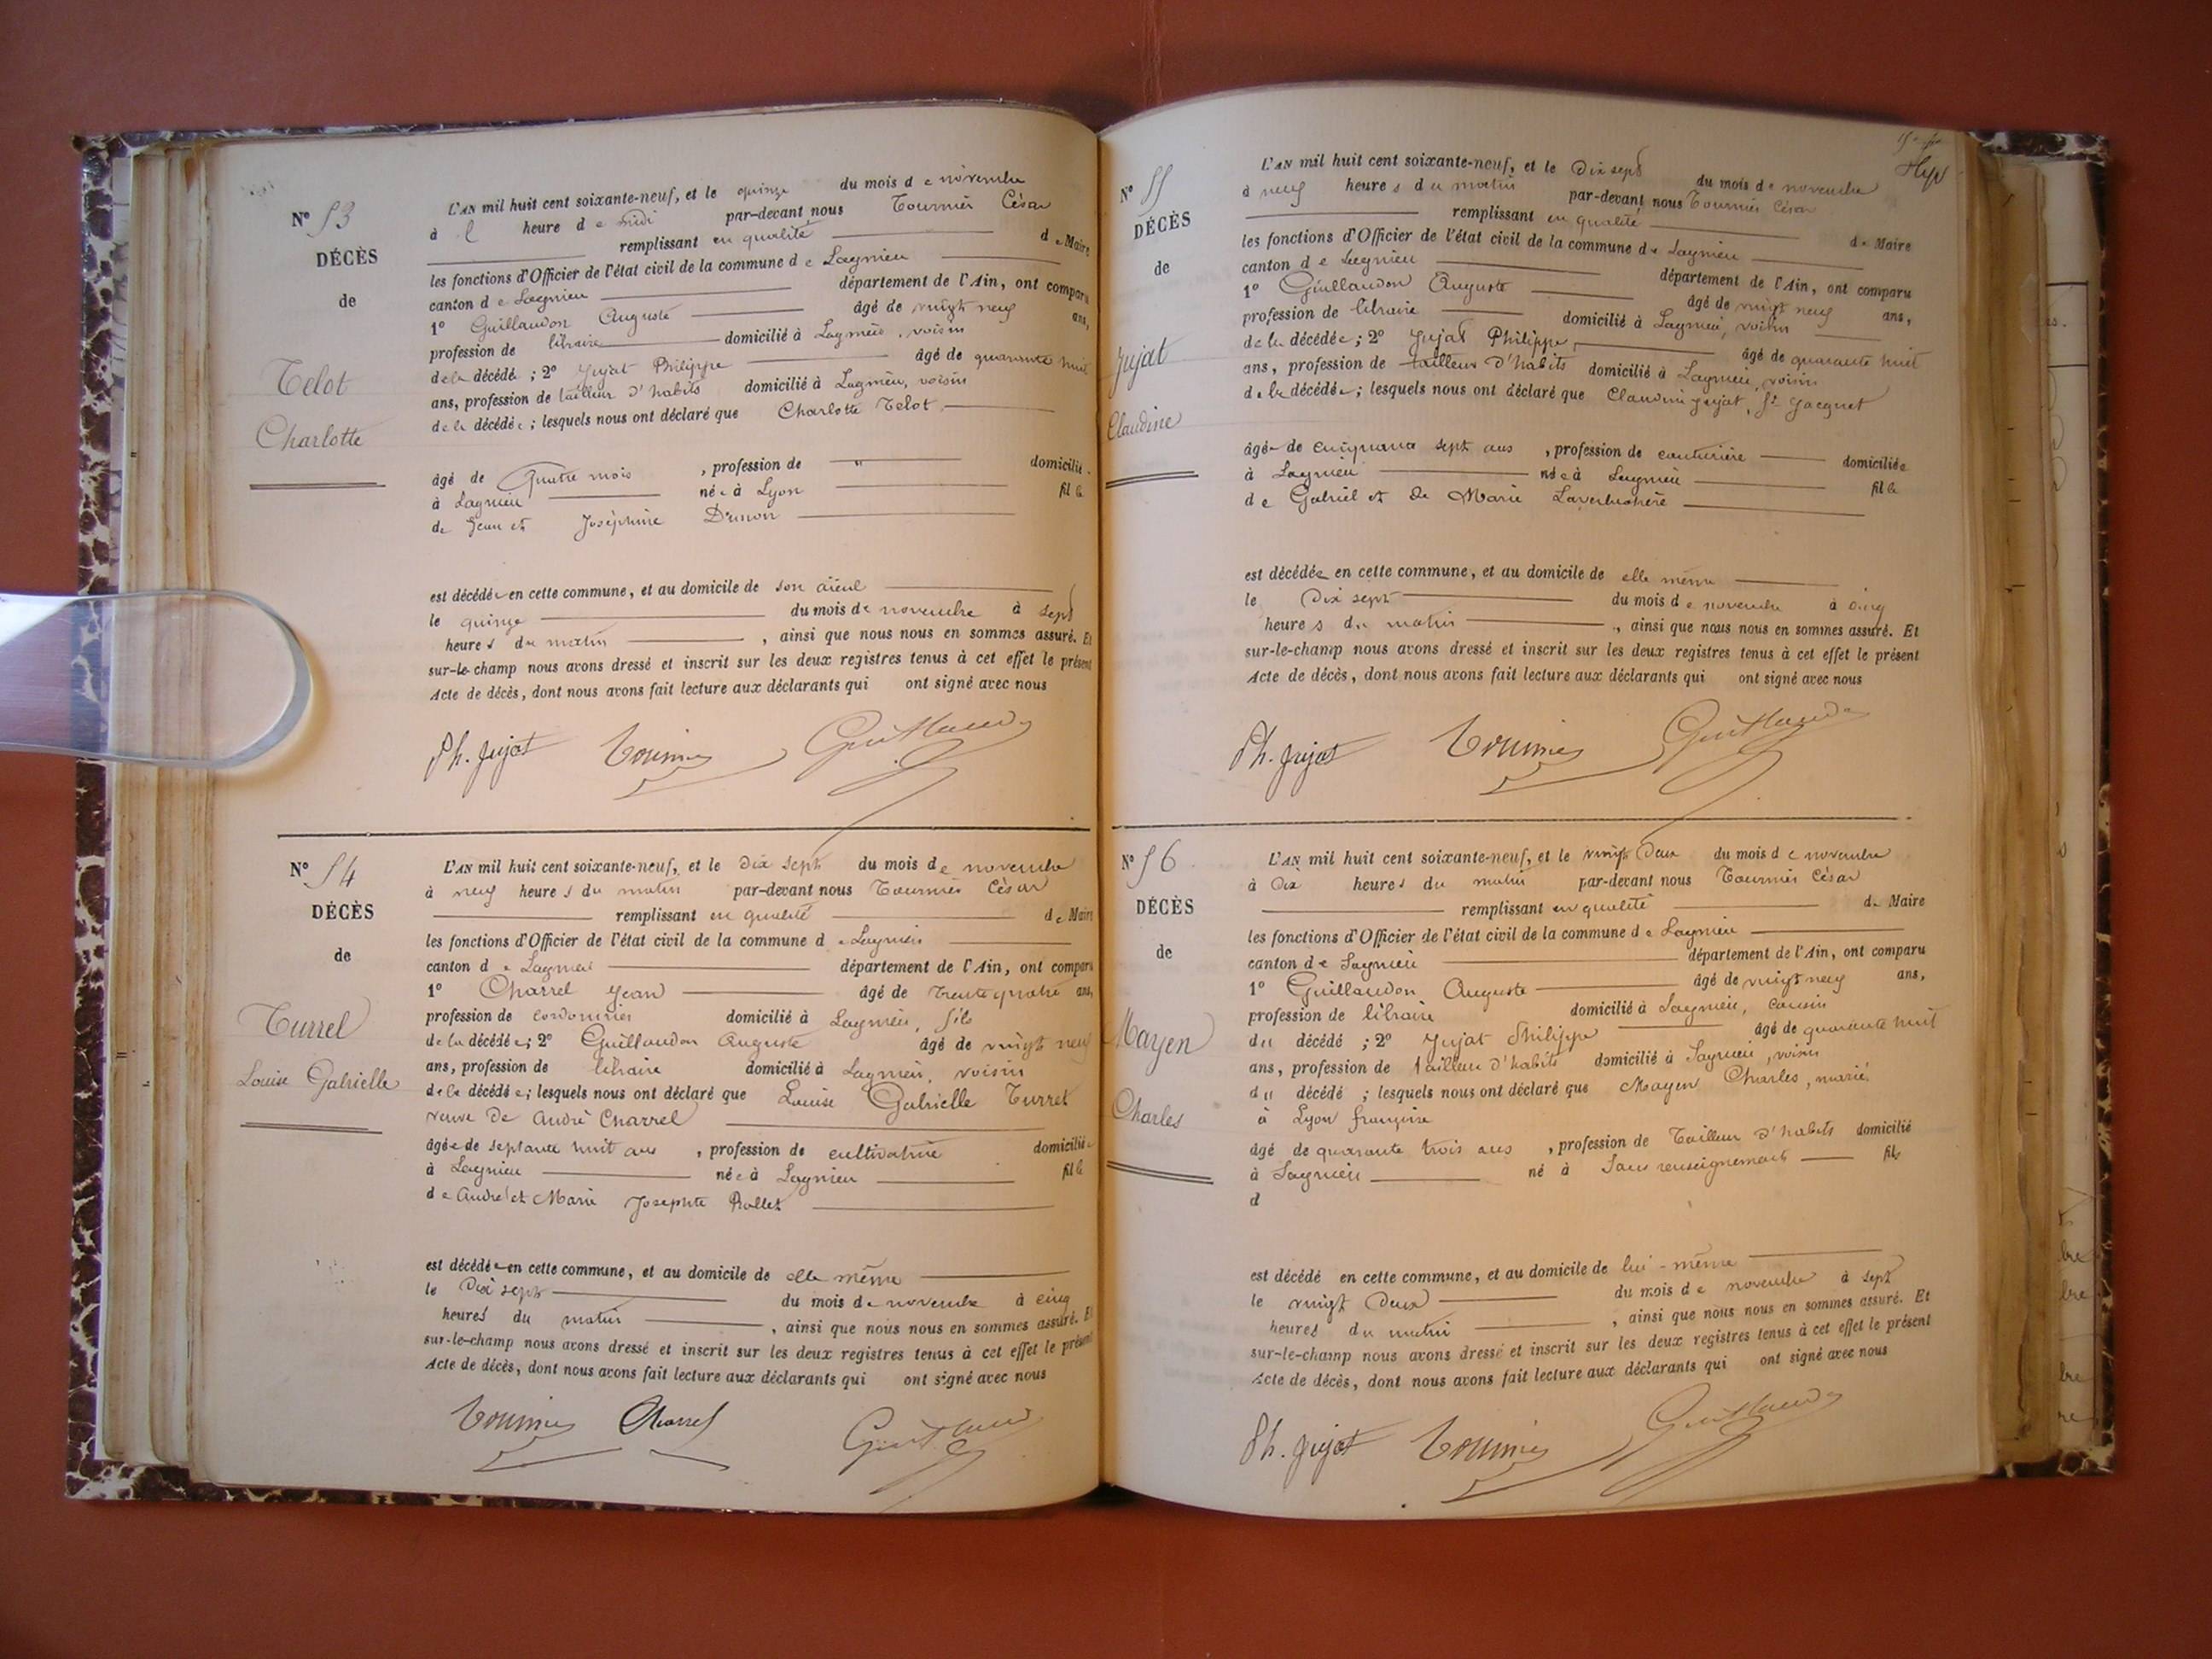 N° 53
DÉCÈS
de
Telot
Charlotte
L'AN mil huit cent soixante-neuf, et le quinze du mois de novembre
à l heure de midi par-devant nous Tournier César
remplissant en qualité de Maire
les fonctions d'Officier de l'état civil de la commune de Lagnieu
canton de Lagnieu département de l'Ain, ont comparu
1° Guillaudon Auguste âgé de vingt neuf ans,
profession de libraire domicilié à Lagnieu, voisin
de la décédée ; 2° Jujat Philippe âgé de quarante huit
ans, profession de tailleur d'habits domicilié à Lagnieu, voisin
de la décédée ; lesquels nous ont déclaré que Charlotte Telot
âgé de Quatre mois , profession de " domicilié
à Lagnieu née à Lyon fille
de Jean et Joséphine
est décédée en cette commune, et au domicile de son aïeul
le quinze du mois de novembre à sept
heures du matin , ainsi que nous nous en sommes assuré. Et
sur-le-champ nous avons dressé et inscrit sur les deux registres tenus à cet effet le présent
Acte de décès, dont nous avons fait lecture aux déclarants qui ont signé avec nous
Ph. Jujat Tournier Guillaudon
N° 54
DÉCÈS
de
Turrel
Louise Gabrielle
L'AN mil huit cent soixante-neuf, et le Dix sept du mois de novembre
à neuf heures du matin par-devant nous Tournier César
remplissant en qualité de Maire
les fonctions d'Officier de l'état civil de la commune de Lagnieu
canton de Lagnieu département de l'Ain, ont comparu
1° Charrel Jean âgé de Trente quatre ans,
profession de cordonnier domicilié à Lagnieu, fils
de la décédée; 2° Guillaudon Auguste âgé de vingt neuf
ans, profession de libraire domicilié à Lagnieu, voisin
de la décédée; lesquels nous ont déclaré que Louise Gabrielle Turrel
veuve de André Charrel
âgée de septante huit ans , profession de cultivatrice domiciliée
à Lagnieu née à Lagnieu fille
de André et Marie Josephte Rollet
est décédée en cette commune, et au domicile de elle même
le Dix sept du mois de novembre à cinq
heures du matin , ainsi que nous nous en sommes assuré. Et
sur-le-champ nous avons dressé et inscrit sur les deux registres tenus à cet effet le présent
Acte de décès, dont nous avons fait lecture aux déclarants qui ont signé avec nous
Tournier Charrel Guillaudon
N° 55
DÉCÈS
de
Jujat
Claudine
L'AN mil huit cent soixante-neuf, et le Dix sept du mois de novembre
à neuf heures du matin par-devant nous Tournier César
remplissant en qualité de Maire
les fonctions d'Officier de l'état civil de la commune de Lagnieu
canton de Lagnieu département de l'Ain, ont comparu
1° Guillaudon Auguste âgé de vingt neuf ans,
profession de libraire domicilié à Lagnieu, voisin
de la décédée ; 2° Jujat Philippe, âgé de quarante huit
ans, profession de tailleur d'habits domicilié à Lagnieu, voisin
de la décédée ; lesquels nous ont déclaré que Claudine Jujat, Jacquet
âgée de cinquante sept ans , profession de couturière domiciliée
à Lagnieu née à Lagnieu fille
de Gabriel et de Marie
est décédée en cette commune, et au domicile de elle même
le Dix sept du mois de novembre à cinq
heures du matin , ainsi que nous nous en sommes assuré. Et
sur-le-champ nous avons dressé et inscrit sur les deux registres tenus à cet effet le présent
Acte de décès, dont nous avons fait lecture aux déclarants qui ont signé avec nous
Ph. Jujat Tournier Guillaudon
N° 56
DÉCÈS
de
Mayen
Charles
L'AN mil huit cent soixante-neuf, et le vingt Deux du mois de novembre
à Dix heures du matin par-devant nous Tournier César
remplissant en qualité de Maire
les fonctions d'Officier de l'état civil de la commune de Lagnieu
canton de Lagnieu département de l'Ain, ont comparu
1° Guillaudon Auguste âgé de vingt neuf ans,
profession de libraire domicilié à Lagnieu, cousin
du décédé ; 2° Jujat Philippe âgé de quarante huit
ans, profession de tailleur d'habits domicilié à Lagnieu, voisin
du décédé ; lesquels nous ont déclaré que Mayen Charles, marié
à Lyon françoise
âgé de quarante trois ans , profession de Tailleur d'habits domicilié
à Lagnieu né à Sans renseignements fils
d
est décédé en cette commune, et au domicile de lui-même
le vingt Deux du mois de novembre à sept
heures du matin , ainsi que nous nous en sommes assuré. Et
sur-le-champ nous avons dressé et inscrit sur les deux registres tenus à cet effet le présent
Acte de décès, dont nous avons fait lecture aux déclarants qui ont signé avec nous
Ph. Jujat Tournier Guillaudon